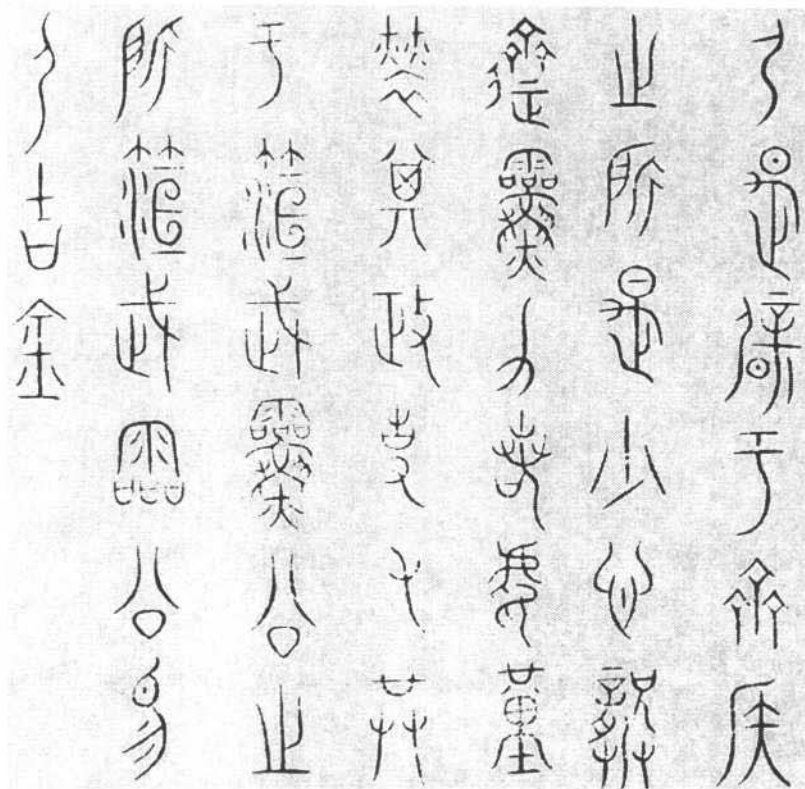 尸是辟于齊侯
之所是少心龏
齊靈力若虎堇
勞其政事又共
于桓武靈公之
所桓武靈公易
尸吉金